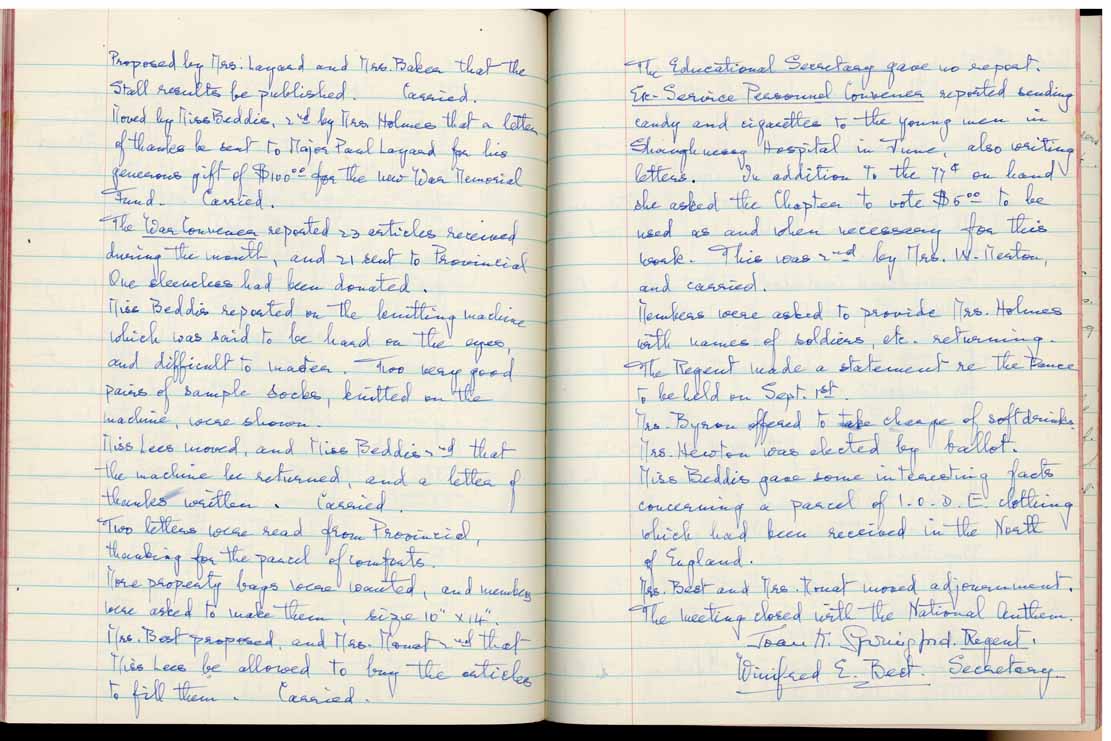 Proposed by Mrs. Layard and Mrs. Baker that the
Stall results be published. Carried.
Moved by Miss Beddis, 2nd by Mrs. Holmes that a letter
of thanks be sent to Major Paul Layard for his
generous gift of $100.00 for the new War Memorial
Fund. Carried.
The War Convener reported 23 articles received
during the month, and 21 sent to Provincial
One sleeveless had been donated.
Miss Beddis reported on the knitting machine
which was said to be hard on the eyes,
and difficult to master. Two very good
pairs of sample socks, knitted on the
machine, were shown.
Miss Lees moved, and Miss Beddis 2nd that
the machine be returned, and a letter of
thanks written. Carried.
Two letters were read from Provincial,
thanking for the parcel of comforts.
More property bags were wanted, and members
were asked to make them, size 10" x 14".
Mrs. Best proposed, and Mrs. Mouat 2nd that
Miss Lees be allowed to buy the articles
to fill them. Carried.
The Educational Secretary gave no report.
Ex-Service Personnel Convener reported sending
candy and cigarettes to the young men in
Shaughnessy Hospital in June, also writing
letters. In addition to the 77¢ on hand
she asked the Chapter to vote $5.00 to be
used as and when necessary for this
work. This was 2nd by Mrs. W. Norton,
and carried.
Members were asked to provide Mrs. Holmes
with names of soldiers, etc. returning.
The Regent made a statement re the Dance
to be held on Sept. 1st.
Mrs. Byron offered to take charge of soft drinks.
Mrs. Newton was elected by ballot.
Miss Beddis gave some interesting facts
concerning a parcel of I.O.D.E. clothing
which had been received in the North
of England.
Mrs. Best and Mrs. Mouat moved adjournment.
The meeting closed with the National Anthem.
Joan N. Springford. Regent.
Winifred E. Best. Secretary